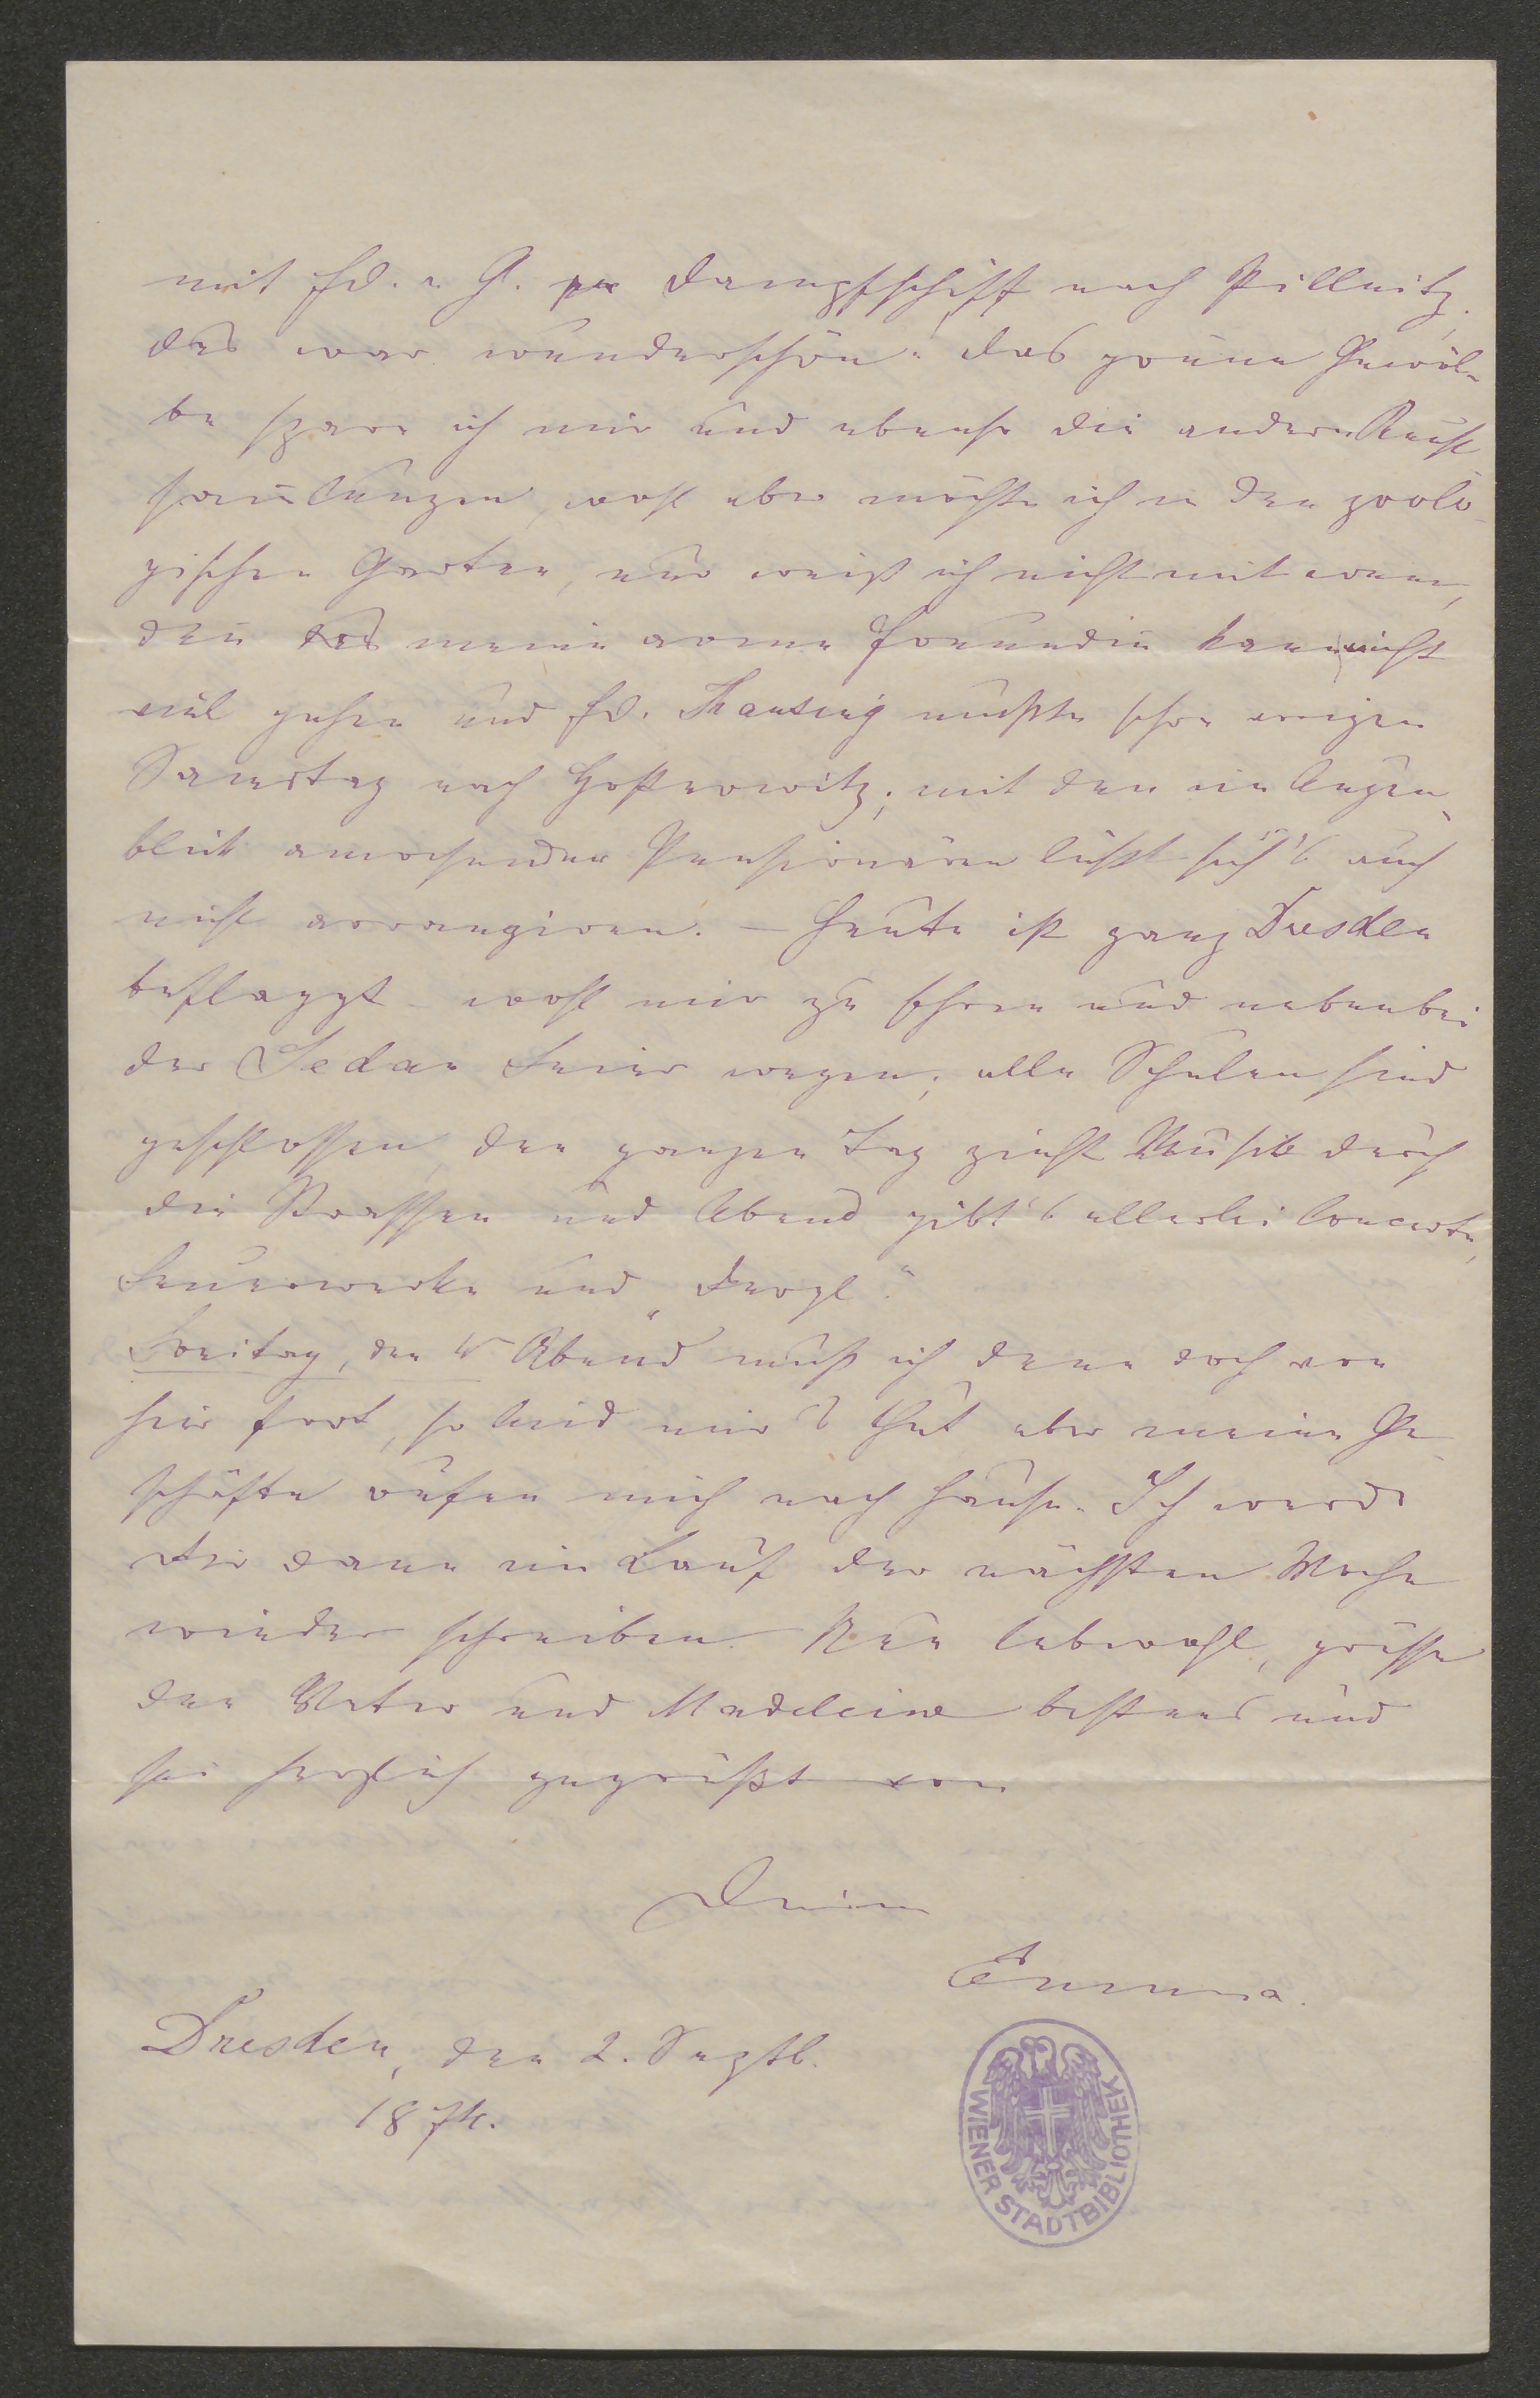 mit Frl. v. G. per Dampfschiff nach Pillnitz,
das war wunderschön. Das grüne Gewöl-
be spare ich mir und ebenso die andern Kunst
sam̄lungen, wohl aber möchte ich in den zoolo-
gischen Garten, nur weiß ich nicht mit wem,
den̄ meine arme Freundin kann nicht
viel gehen und Frl. mußte schon vorigen
Samstag nach; mit den im Augen-
blick anwesenden Pensionären läßt sich's auch
nicht arrangiren. – Heute ist ganz Dresden
beflaggt wohl mir zu Ehren und nebenbei
der Sedan Feier wegen; alle Schulen sind
geschlossen den ganzen Tag zieht Musik durch
die Strassen und Abend gibt's allerlei Concerte,
Feuerwerke und „dergl."
Freitag, den 4 Abend muß ich denn doch von
hier fort, so leid mir's thut aber meine Ge-
schäfte rufen mich nach Hause. Ich werde
Dir dann im Lauf der nächsten Woche
wieder schreiben. Nun lebwohl, grüsse
den Vater und Madeleine bestens und
sei herzlich gegrüßt von
Deiner
Emma.
Dresden, den 2. Septb.
1874.
WIENER STADTBIBLIOTHEK